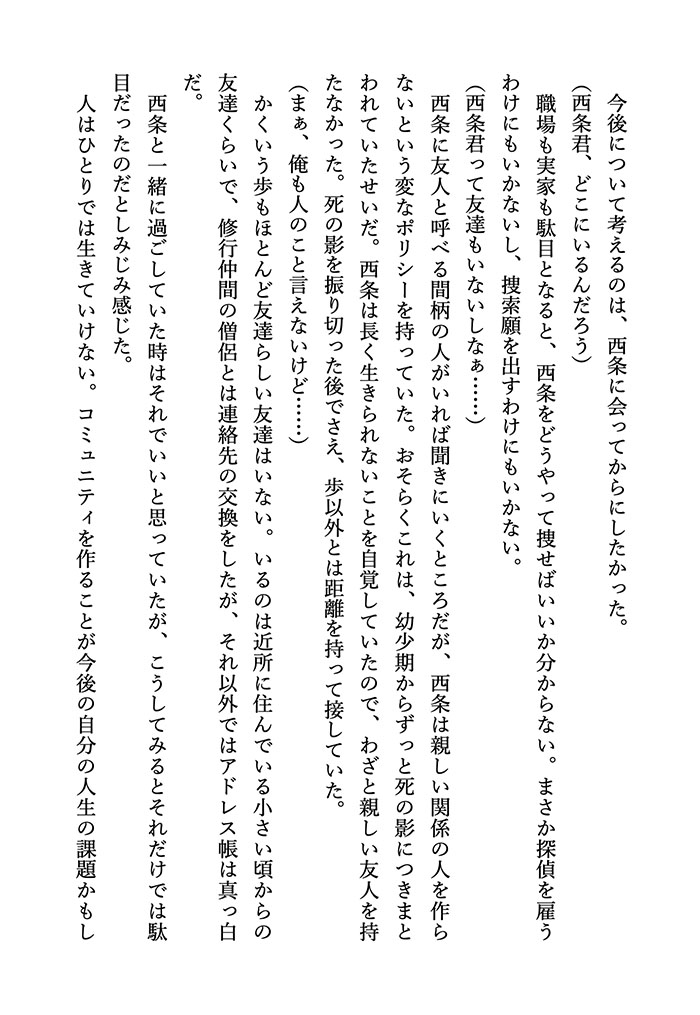 今後について考えるのは、西条に会ってからにしたかった。
(西条君、どこにいるんだろう)
職場も実家も駄目となると、西条をどうやって捜せばいいか分からない。まさか探偵を雇う
わけにもいかないし、捜索願を出すわけにもいかない。
(西条君って友達もいないしなぁ……)
西条に友人と呼べる間柄の人がいれば聞きにいくところだが、西条は親しい関係の人を作ら
ないという変なポリシーを持っていた。おそらくこれは、幼少期からずっと死の影につきまと
われていたせいだ。西条は長く生きられないことを自覚していたので、わざと親しい友人を持
たなかった。死の影を振り切った後でさえ、歩以外とは距離を持って接していた。
(まぁ、俺も人のこと言えないけど……)
かくいう歩もほとんど友達らしい友達はいない。いるのは近所に住んでいる小さい頃からの
友達くらいで、修行仲間の僧侶とは連絡先の交換をしたが、それ以外ではアドレス帳は真っ白
だ。
西条と一緒に過ごしていた時はそれでいいと思っていたが、こうしてみるとそれだけでは駄
目だったのだとしみじみ感じた。
人はひとりでは生きていけない。コミュニティを作ることが今後の自分の人生の課題かもし